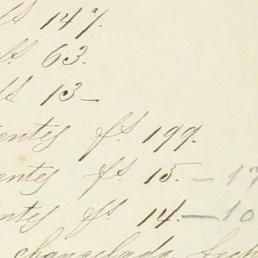 fs. 147.
fs. 63.
fs 13_
entes fs. 199.
entes fs. 15. _ 17
entes fs. 14. _ 10
chancelada